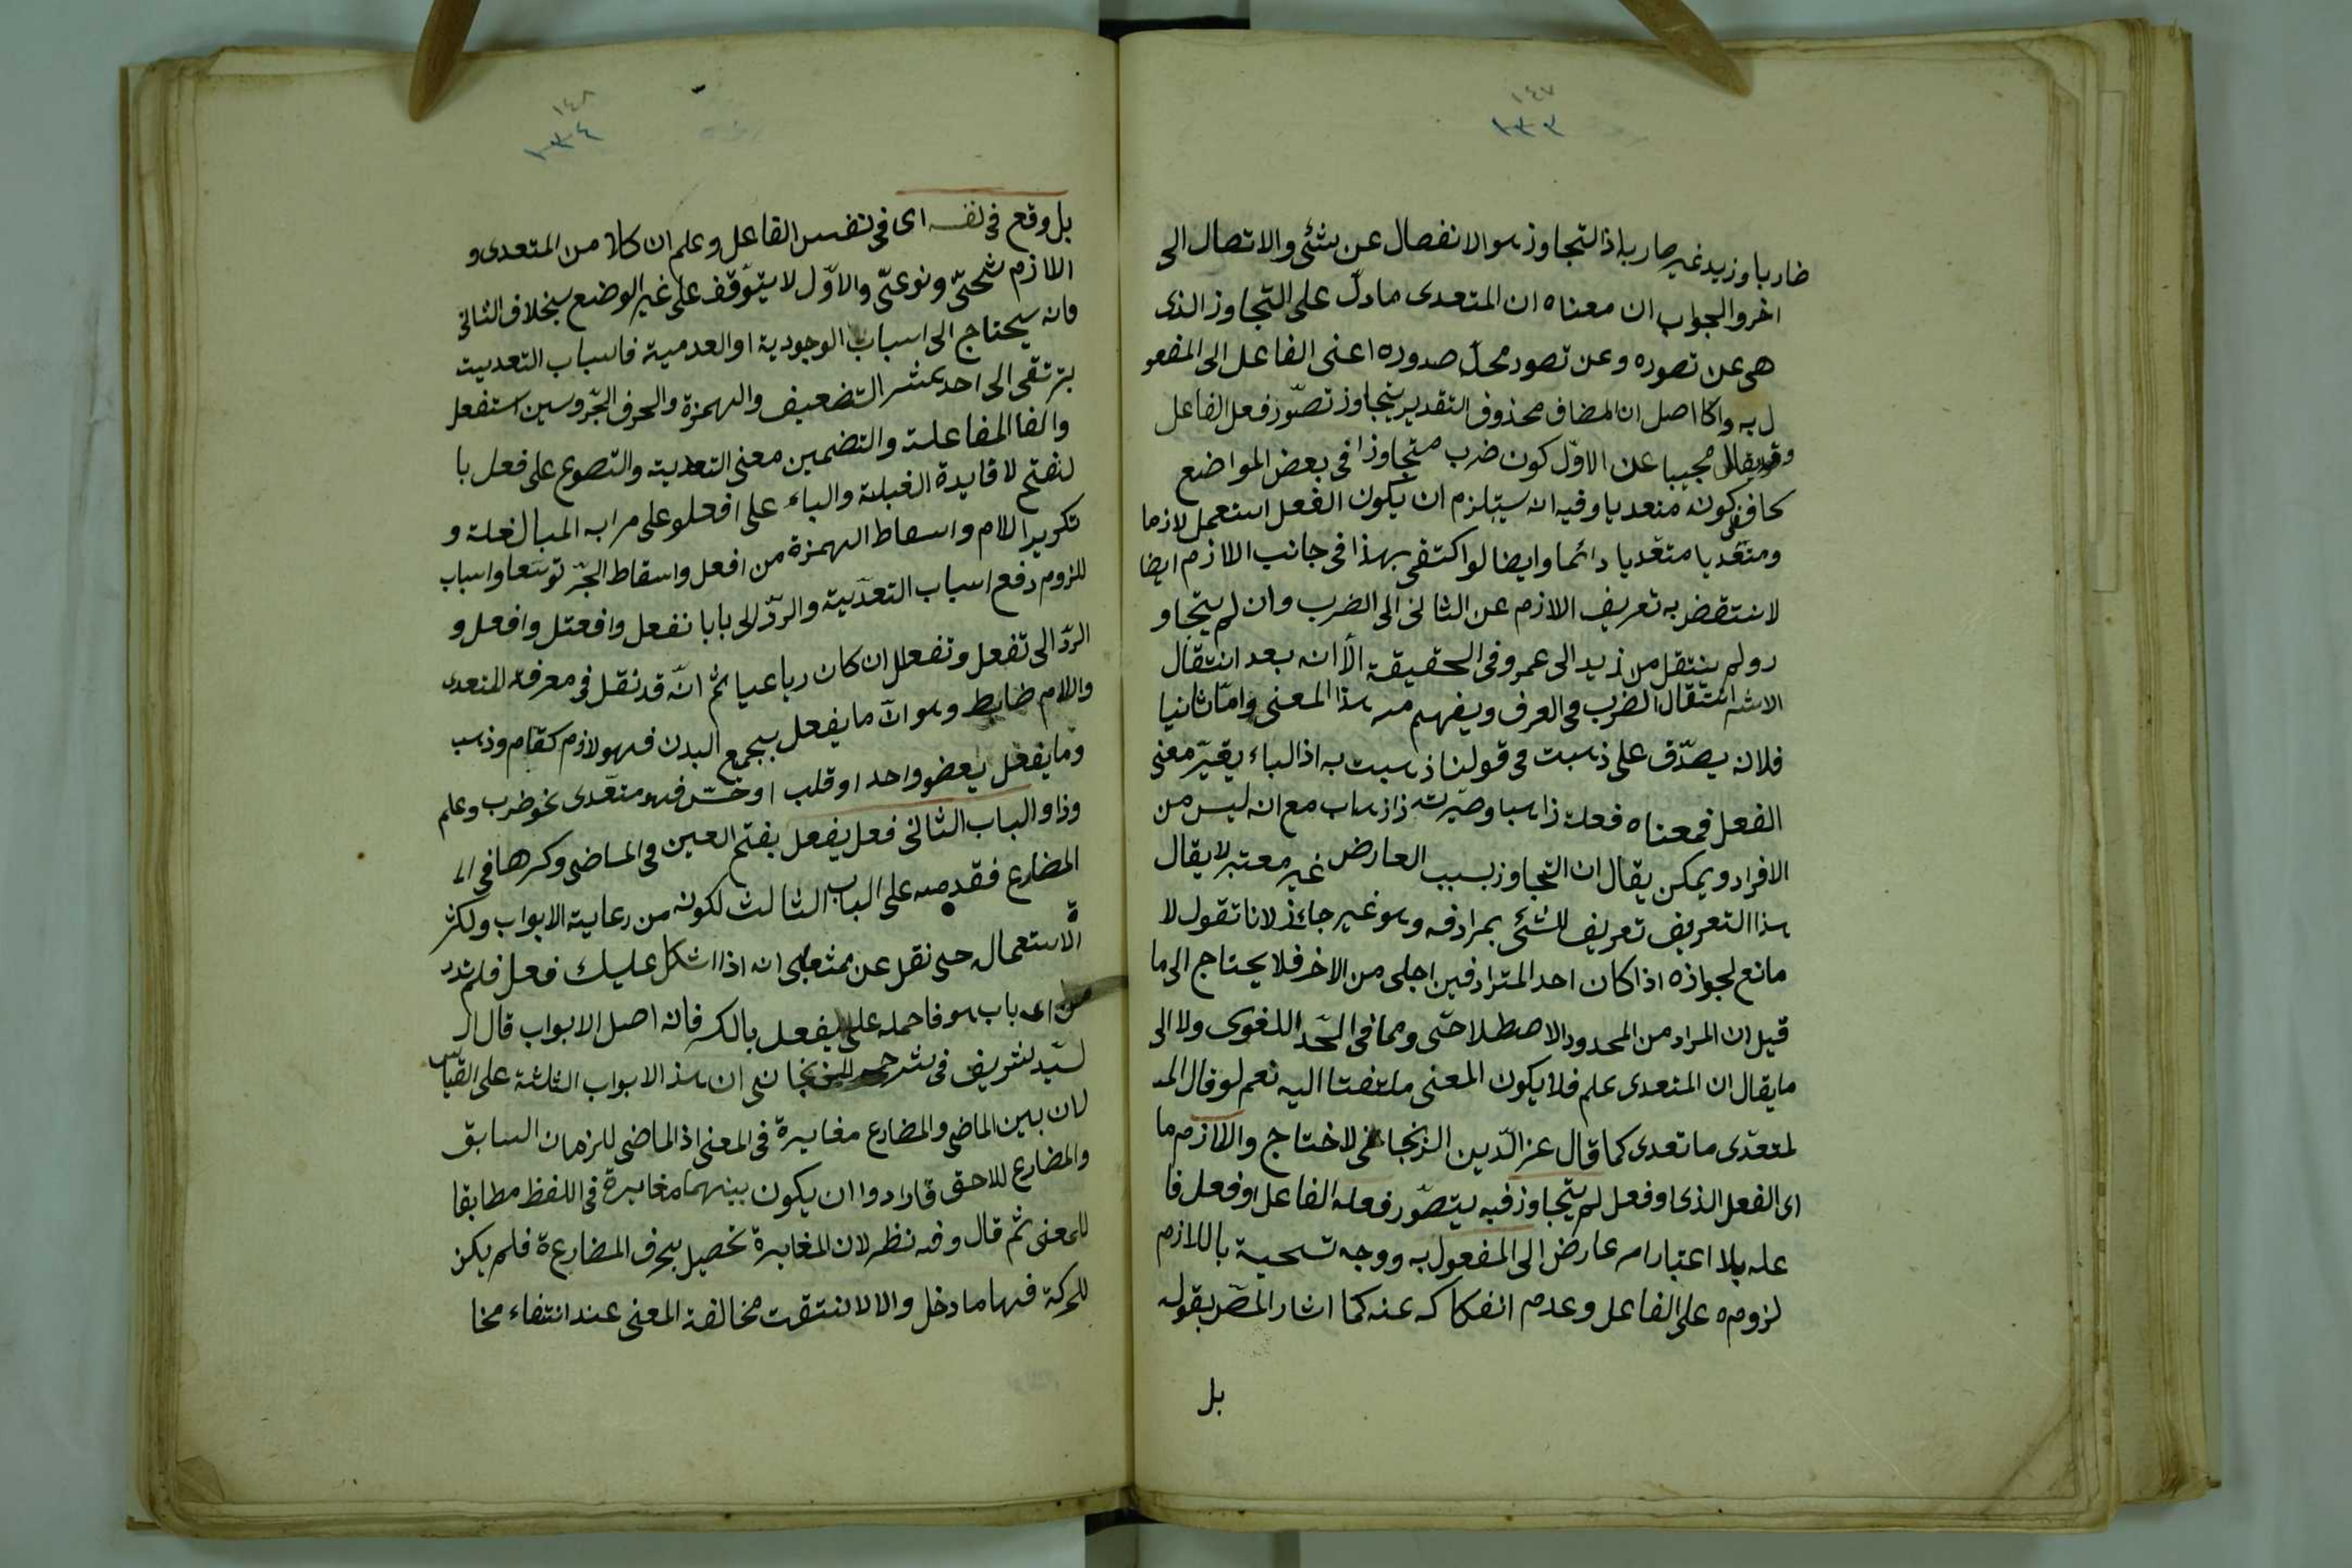 ١٤٧
١٣٣
ضاربا وزيد غير ضاربه اذ التجاوز هو الانفصال عن شئ والاتصال الى
اخر والجواب ان معناه ان المتعدى ما دلّ على التجاوز الذى
هى عن تصوره وعن تصور محلّ صدوره اعنى الفاعل الى المفعو
ل به والحاصل ان المضاف محذوف التقدير يتجاوز تصوّر فعل الفاعل
وقد يقال مجيبا عن الاوّل كون ضرب متجاوزا فى بعض المواضع
كاف فى كونه متعديا وفيه انه يستلزم ان يكون الفعل استعمل لازما
ومتعّديا متعّديا دائما وايضا لو اكتفى بهذا فى جانب اللازم ايضا
لانتقض به تعريف اللازم عن الثانى الى الضرب وان لم يتجاو
ز ولم ينتقل من زيد الى عمرو فى الحقيقة الّا انه بعد انتقال
الاثر انتقال الضرب فى العرف ويفهم منه هذا المعنى وامّا ثانيا
فلانه يصدّق على ذهبت فى قولنا ذهبت به اذ الباء يغيّر معنى
الفعل فمعناه فعلة ذاهبا وصيّرت ذا ذهاب مع انه ليس من
الافراد ويمكن يقال ان التجاوز بسبب العارض غير معتبر لا يقال
هذا التعريف تعريف للشئ بمرادفه وهو غير جائز لانا تقول لا
مانع لجوازه اذا كان احد المترادفين اجلى من الاخر فلا يحتاج الى ما
قيل ان المراد من المحدود الاصطلاحّى ومما فى الحّد اللغوى ولا الى
ما يقال ان المتعدى علم فلا يكون المعنى ملتفتا اليه نعم لو قال المـ
لمتعدّى ما تعدى كما قال عز الدّين الزنجانى لاحتاج واللازم ما
اى الفعل الذى او فعل لم يتجاوز فيه يتصوّر فعله الفاعل او فعل فا
عله بلا اعتبار امر عارض الى المفعول به ووجه تسمية باللازم
لزومه على الفاعل وعدم انفكاكه عنه كما اشار المصّ بقوله
بل
١٤٨
١٣٤
بل وقع فى نفسه اى فى نفس الفاعل وعلم ان كلا من المتعدى و
اللازم شخصّى ونوعىّ والاوّل لا يتوّقف على غير الوضع بخلاف الثانى
فانه يحتاج الى اسباب الوجودية او العدمية فاسباب التعديت
يترتقى الى احد عشر التضعيف والهمزة والحرف الجّر وسين استفعل
والفا المفاعلة والتضمين معنى التعدية والتصوع على فعل با
لفتح لا فايدة الغبلة والباء على افعلو على مرابه المبالغلة و
تكرير اللام واسقاط الهمزة من افعل واسقاط الجّر توسّعا واسباب
للزوم دفع اسباب التعدّية والردّ الى بابا نفعل وافعتل وافعل و
الردّ الى تفعل وتفعلل ان كان رباعيا ثم انّه قد نقل فى معرفة المتعدى
واللام ضابط وهو انّ ما يفعل بجميع البدن فهو لازم كقام وذهب
وما يفعل بعضو واحد او قلب او حسّ فهو متعّدى نحو ضرب وعلم
وذا والباب الثانى فعل يفعل بفتح العين فى الماضى وكسرها فى الـ
المضارع فقدمه على الباب الثالث لكونه من رعاية الابواب ولكثر
ة الاستعمال حتى نقل عن انه اذا اشكل عليك فعل فلم تدر
من اى باب هو فاحمله على يفعل بالكسر فانه اصل الابواب قال الـ
سّيد لشريف فى شرح الزنجانى ان هذ الابواب الثلثة على القياس
لان بين الماضى والمضارع مغايرة فى المعنى اذ الماضى للزمان السابق
والمضارع للاحق فارادوا ان يكون بينهما مغايرة فى اللفظ مطابقا
للمعنى ثم قال وفيه نظر لان المغايرة تحصيل بحرف المضارعة فلم يكن
للحركة فيها مادخل والا لانتقت مخالفة المعنى عند انتفاء مخا